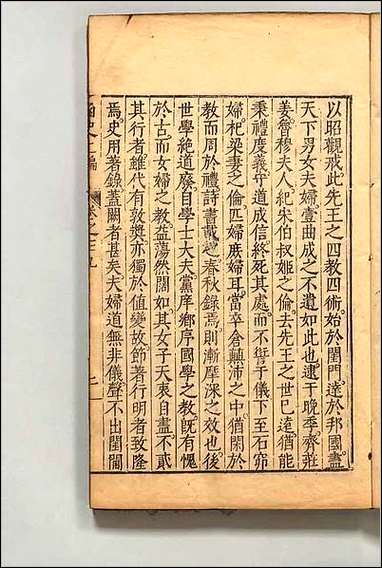 以昭觀戒此先王之四教四術始於閨門達於邦國盡
天下男女夫婦壹曲成之不遺如此也逮干晚季齊莊
姜魯穆夫人紀宋伯叔姬之倫去先王之世已遠猶能
秉禮度義守道成信終死其處而不愆于儀下至石窌
婦杞梁妻之倫匹婦庶婦耳當卒倉顛沛之中猶閑於
教而周於禮詩書載之春秋錄焉則漸摩深之效也後
世學絶道廢自學士大夫黨庠鄉序國學之教既有愧
於古而女婦之教益蕩然闊如其女子天衷自盡不貳
其行者雖代有敦奬亦獨於值變故節著行明者致隆
焉史用著錄蓋闕者甚矣夫婦道無非儀聲不出閨閫
函史上編
卷之七九
二